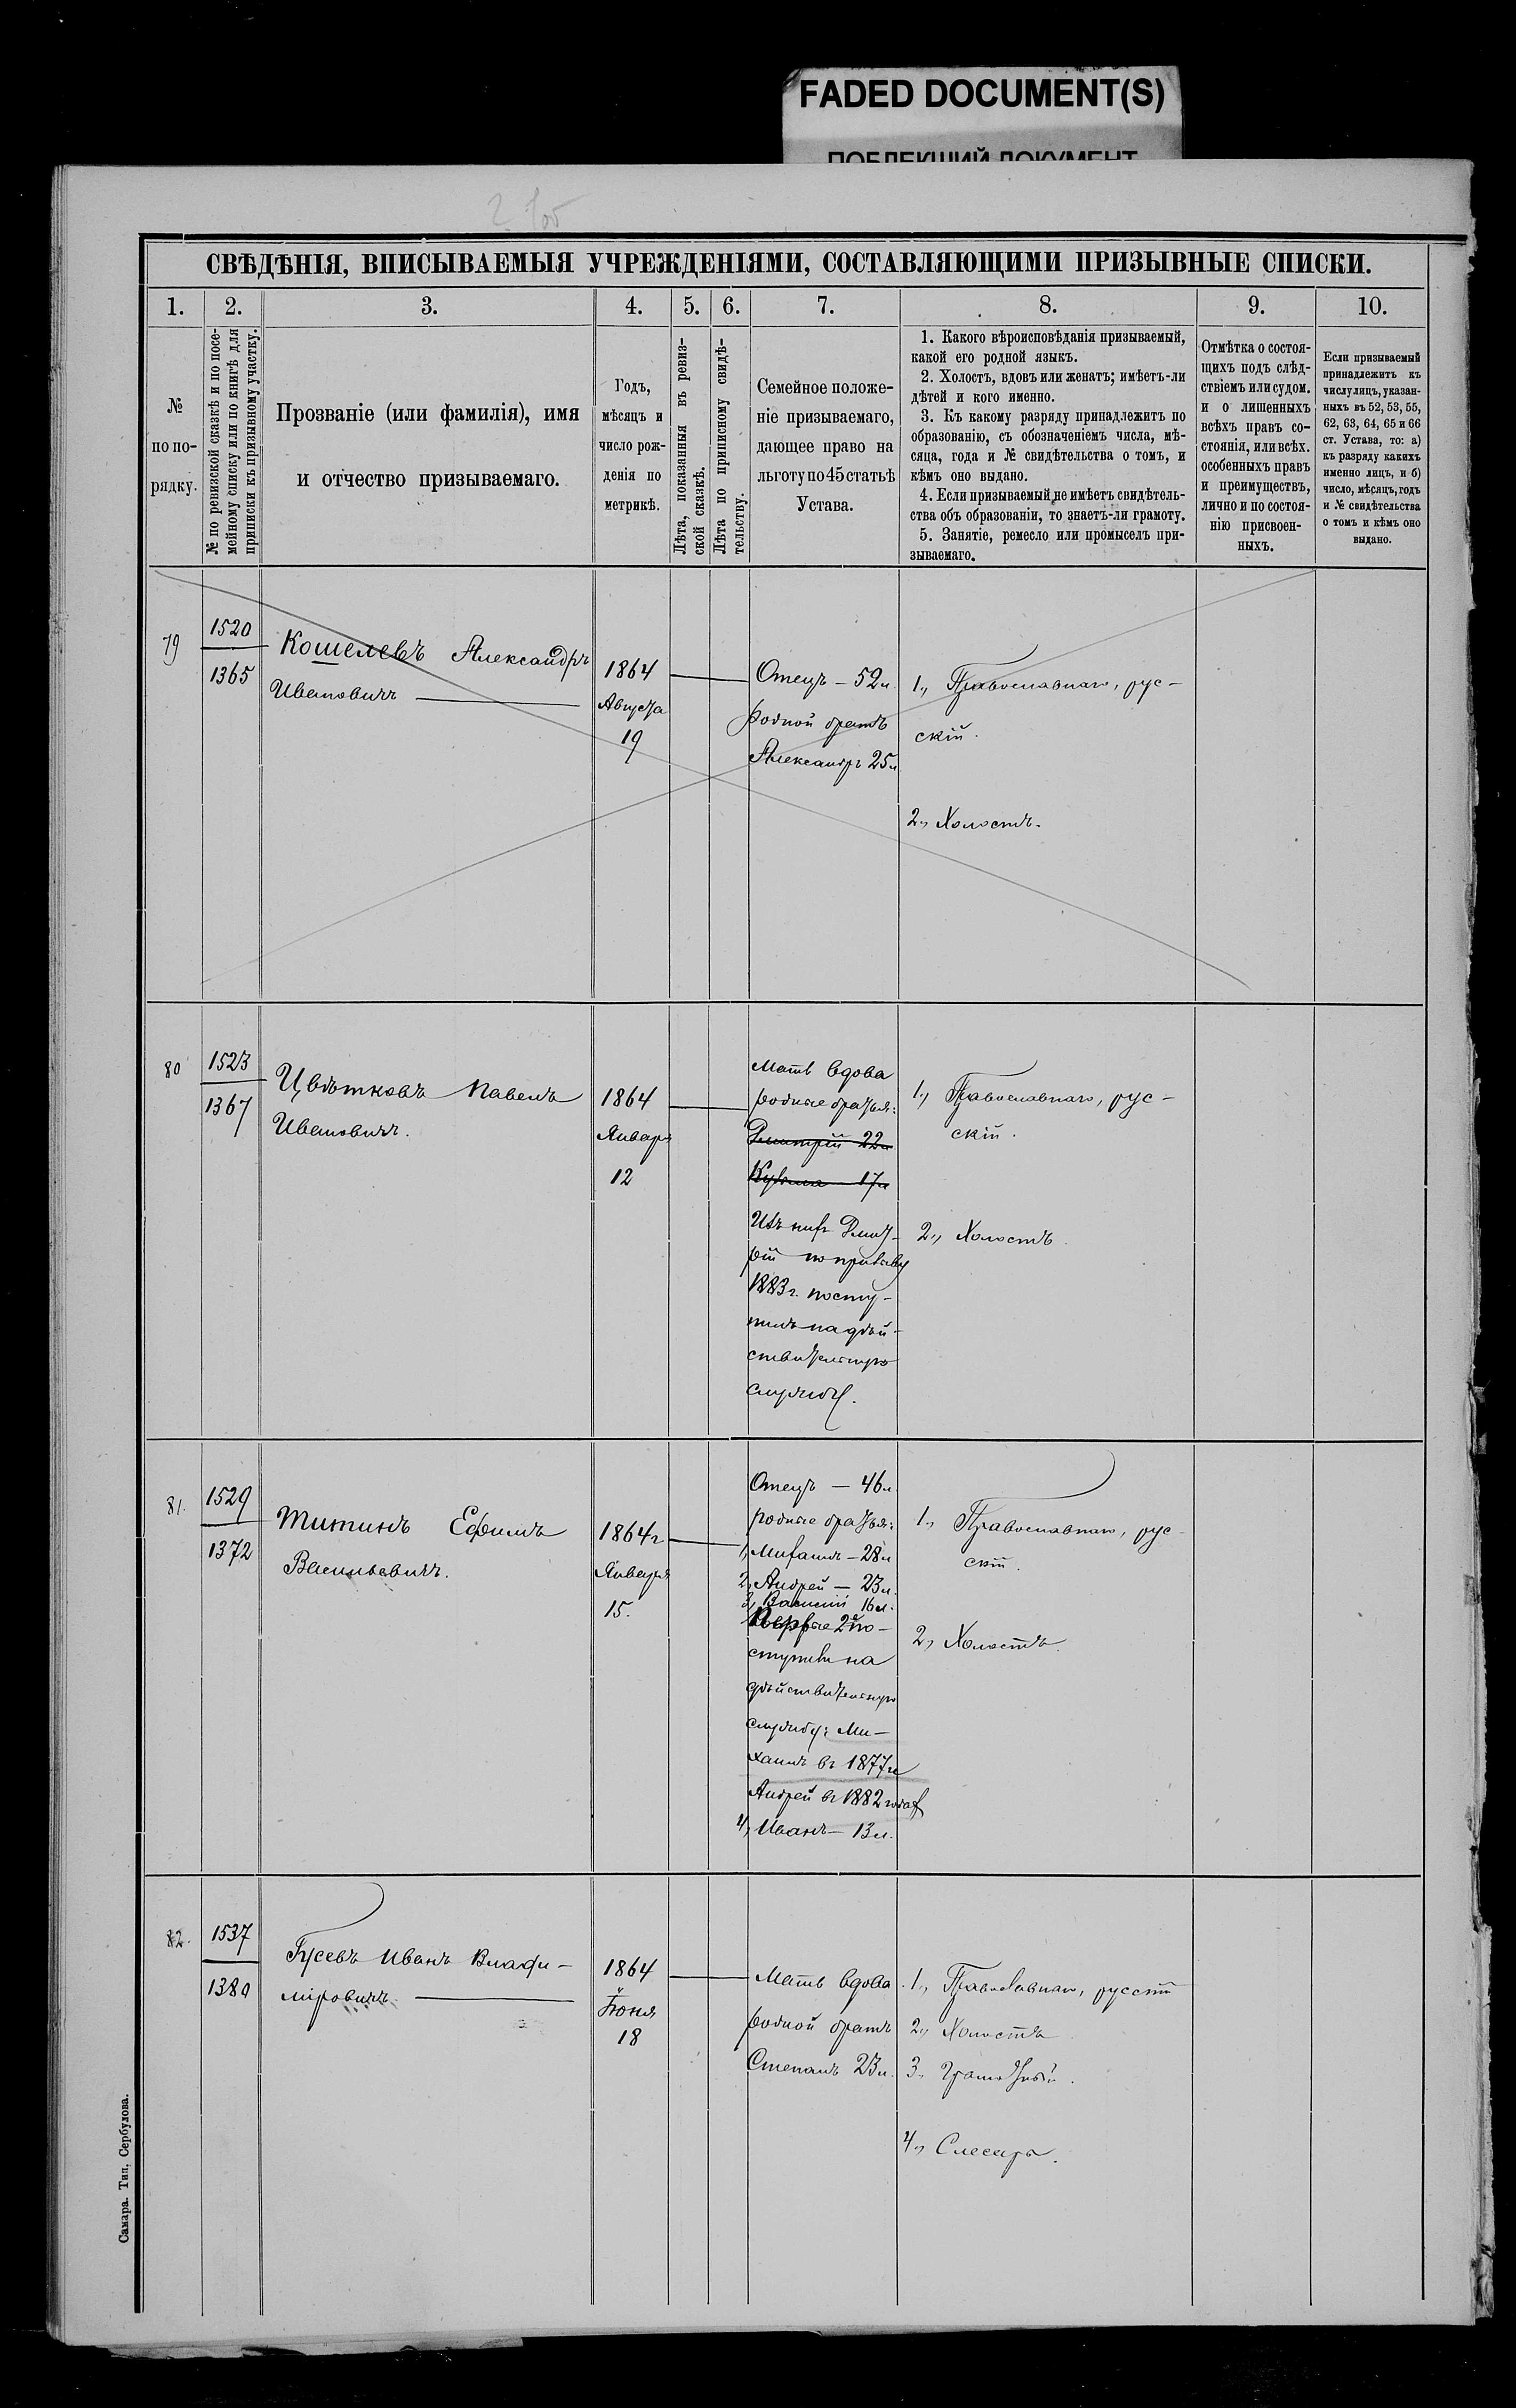 FADED DOCUMENT(S)
ПОБЛЕКШИЙ ДОКУМЕНТ
СВѢДѢНІЯ, ВПИСЫВАЕМЫЯ УЧРЕЖДЕНІЯМИ, СОСТАВЛЯЮЩИМИ ПРИЗЫВНЫЕ СПИСКИ.
1. 2. 3. 4. 5. 6. 7. 8. 9. 10.
№
по по-
рядку.
№ по ревизской сказкѣ и по посе-
мейному списку или по книгѣ для
приписки къ призывному участку.
Прозваніе (или фамилія), имя
и отчество призываемаго.
Годъ,
мѣсяцъ и
число рож-
денія по
метрикѣ.
Лѣта, показанныя въ ревиз-
ской сказкѣ.
Лѣта по приписному свидѣ-
тельству.
Семейное положе-
ніе призываемаго,
дающее право на
льготу по 45 статьѣ
Устава.
1. Какого вѣроисповѣданія призываемый,
какой его родной языкъ.
2. Холостъ, вдовъ или женатъ; имѣетъ-ли
дѣтей и кого именно.
3. Къ какому разряду принадлежитъ по
образованію, съ обозначеніемъ числа, мѣ-
сяца, года и № свидѣтельства о томъ, и
кѣмъ оно выдано.
4. Если призываемый не имѣетъ свидѣтель-
ства объ образованіи, то знаетъ-ли грамоту.
5. Занятіе, ремесло или промыселъ при-
зываемаго.
Отмѣтка о состоя-
щихъ подъ слѣд-
ствіемъ или судом.
и о лишенныхъ
всѣхъ правъ со-
стоянія, или всѣх.
особенныхъ правъ
и преимуществъ,
лично и по состоя-
нію присвоен-
ныхъ.
Если призываемый
принадлежитъ къ
числу лицъ, указан-
ныхъ въ 52, 53, 55,
62, 63, 64, 65 и 66
ст. Устава, то: а)
къ разряду какихъ
именно лицъ, и б)
число, мѣсяцъ, годъ
и № свидѣтельства
о томъ и кѣмъ оно
выдано.
79
1520
1365
Кошелевъ Александръ
Ивановичъ
1864
Августа
19
Отецъ — 52 л.
родной братъ
Александръ 25 л
1., Православнаго, рус-
скій.
2., Холостъ.
80
1523
1367
Цвѣтковъ Павелъ
Ивановичъ.
1864
Января
12
Мать вдова
родные братья:
Дмитрій 22 л
Кузьма 17 л
Изъ нихъ Дмит-
рій по призыву
1883 г. посту-
пилъ на дѣй-
ствительную
службу.
1., Православнаго, рус-
скій.
2., Холостъ.
81.
1529
1372
Титинъ Ефимъ
Васильевичъ.
1864 г
Января
15.
Отецъ — 46 л
родные братья:
1, Михаилъ — 28 л
2, Андрей — 23 л.
3, Василій 16 л.
Первые 2е по-
ступили на
дѣйствительную
службу: Ми-
хаилъ въ 1877 г
Андрей въ 1882 годах
4, Иванъ — 13 л.
1., Православнаго, рус-
скій.
2., Холостъ.
82.
1537
1380
Гусевъ Иванъ Влади-
міровичъ
1864
Іюня
18
Мать вдова
родной братъ
Степанъ 23 л.
1., Православнаго, русскій
2., Холостъ
3., Грамотный.
4., Слесарь.
Самара. Тип. Сербулова.